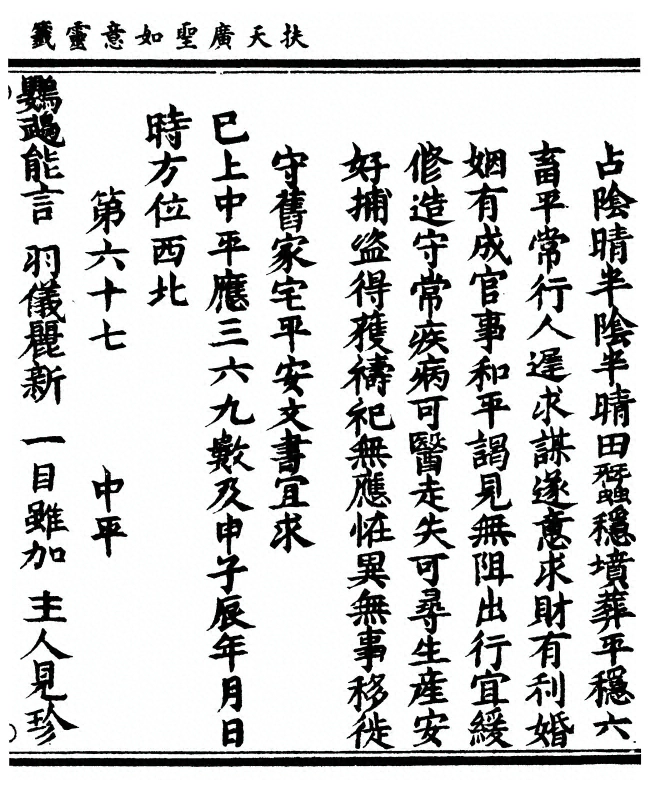 扶天廣聖如意靈籤
占陰晴半陰半晴田蠶穩墳葬平穩六
畜平常行人遲求謀遂意求財有利婚
姻有成官事和平謁見無阻出行宜緩
修造守常疾病可醫走失可尋生產安
好捕盜得獲禱祀無應恠異無事移徙
守舊家宅平安文書宜求
已上中平應三六九數及申子辰年月日
時方位西北
第六十七 中平
鸚鵡能言 羽儀麗新 一目雖加 主人見珍